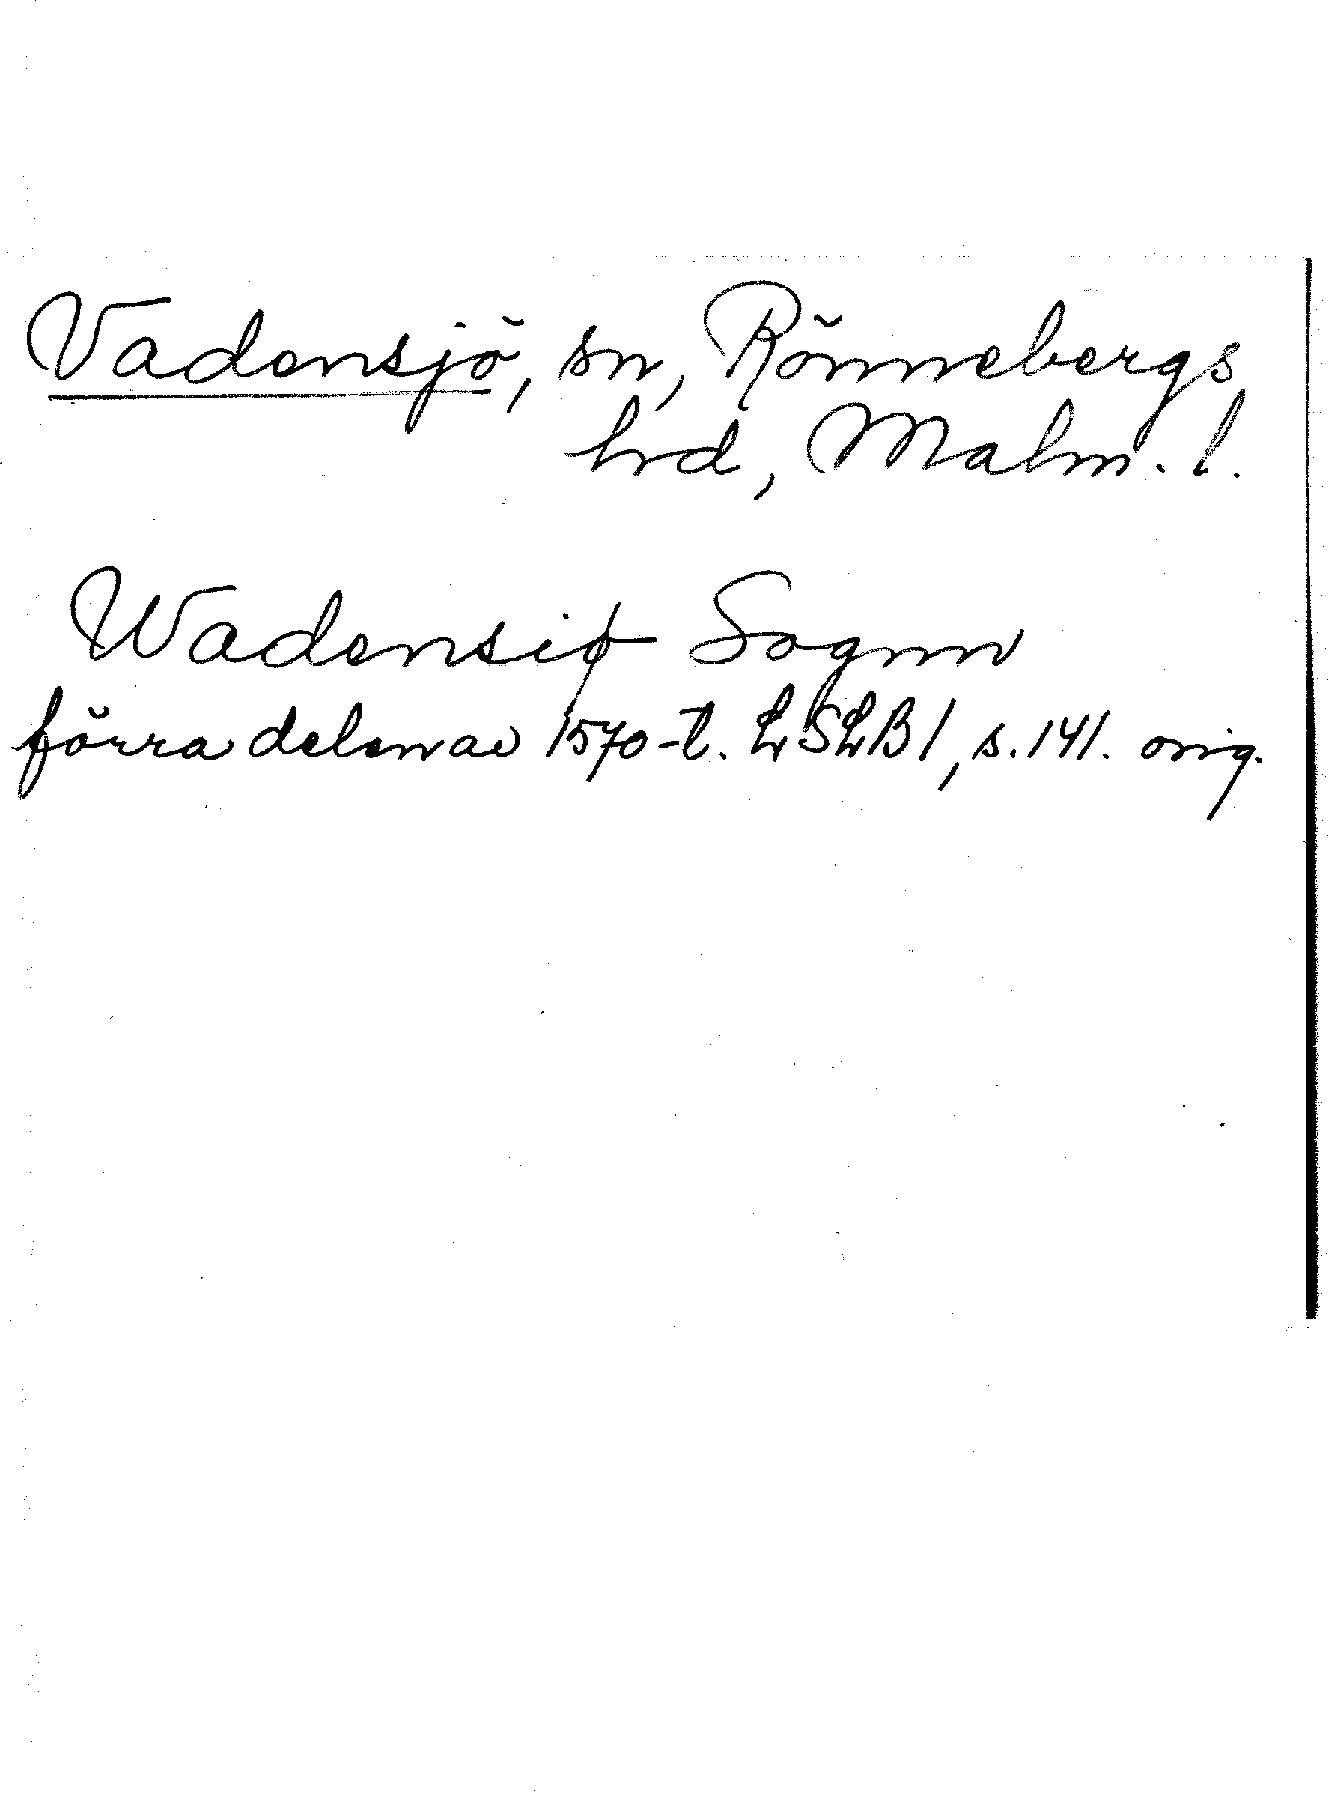 Vadensjö, sn, Rönnebergs
hd, Malm. l.
Wadensiø Sognn
förra delen av 1570-t. LSLB 1, s. 141. orig.